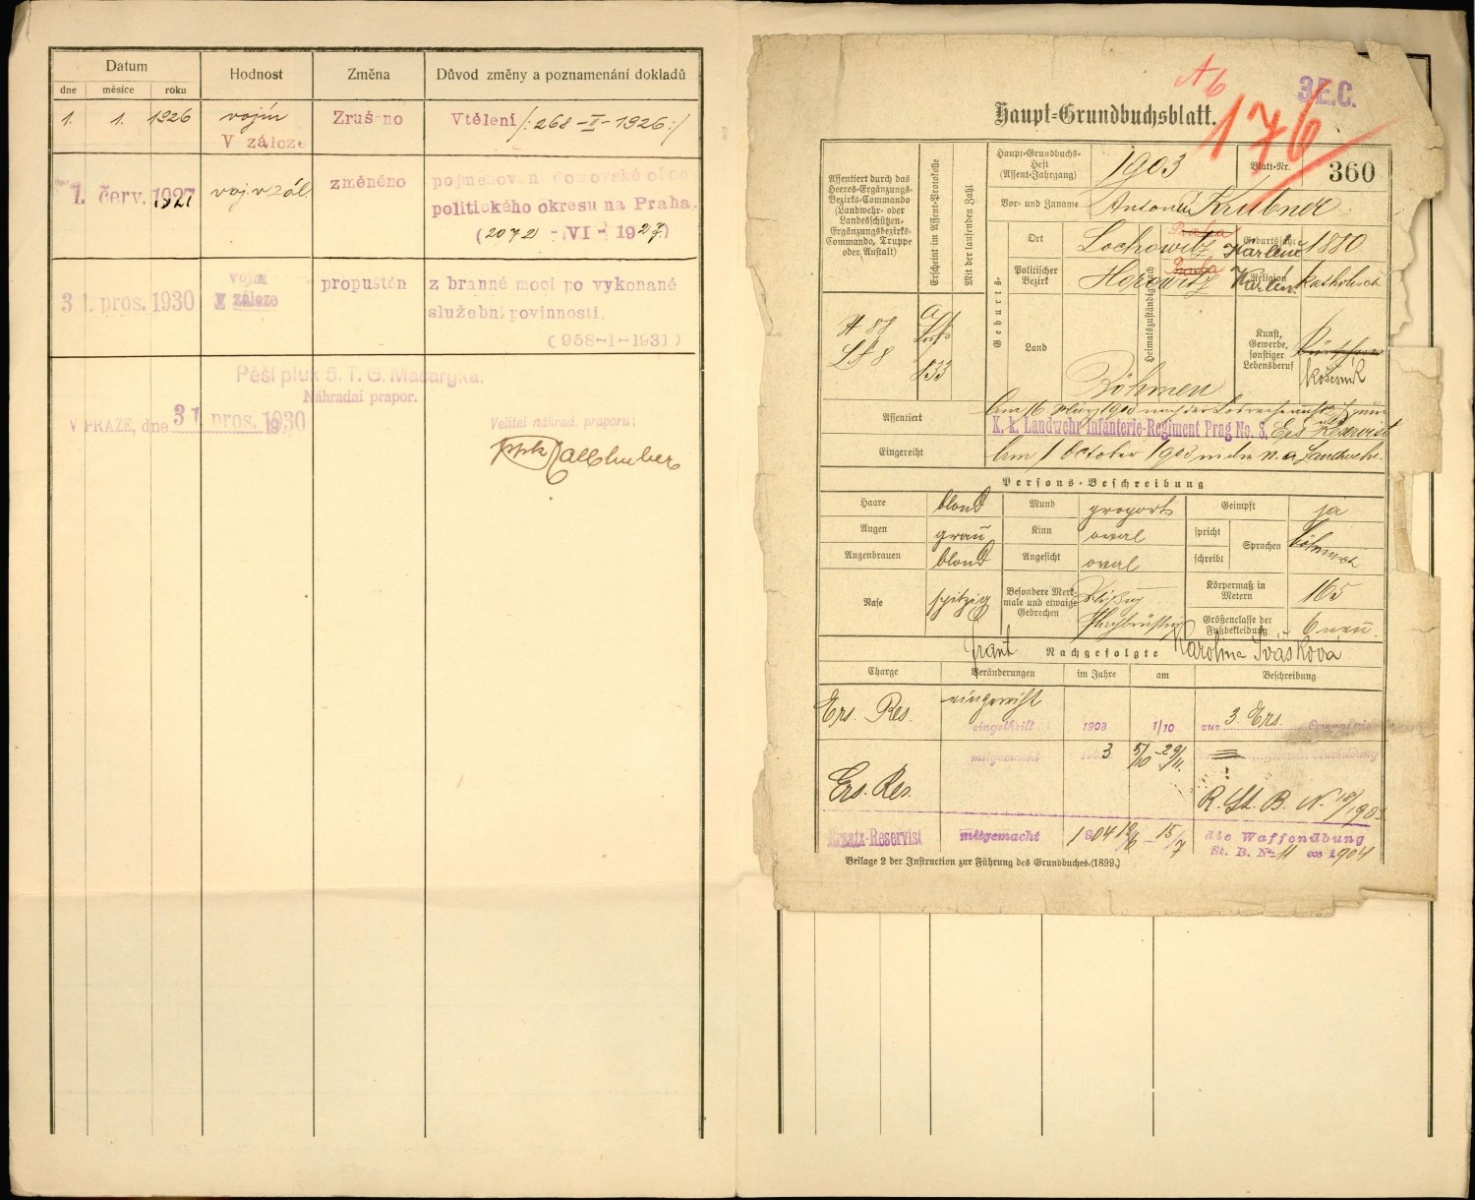 Datum
dne měsíce roku
Hodnost
Změna
Důvod změny a poznamenání dokladů
1. 1. 1926
vojín
V záloze
Zrušeno
Vtělení /:268-II-1926:/
1. červ. 1927
voj. v zál.
změněno
pojmenování domovské obce
politického okresu na Praha.
(2072 - VI - 1927)
31. pros. 1930
vojín
V záloze
propuštěn
z branné moci po vykonané
služební povinnosti.
(958-I-1931)
Pěší pluk 5. T. G. Masaryka.
Náhradní prapor.
V PRAZE, dne 31. pros. 1930
Velitel náhrad. praporu:
Ab
176
3E.C.
Haupt-Grundbuchsblatt.
Assentiert durch das
Heeres-Ergänzungs-
Bezirks-Commando
(Landwehr- oder
Landesschützen-
Ergänzungsbezirks-
Commando, Truppe
oder Anstalt)
Erscheint im Assent-Protokolle
Mit der laufenden Zahl
Haupt-Grundbuchs-
Heft
(Assent-Jahrgang)
1903
Blatt-Nr.
360
Vor- und Zuname
Antonín Krübner
Geburts-
Ort
Lochowitz
Praha
Karlín
Geburtsjahr
1880
Politischer
Bezirk
Horowitz
Praha
Karlín
Religion
katholisch
Heimatszuständig nach
Land
Böhmen
Kunst,
Gewerbe,
sonstiger
Lebensberuf
133
Assentiert
K. k. Landwehr Infanterie-Regiment Prag No. 8. Ers. Reservist
Eingereiht
Am 1 October 1903 in die n. a. Landwehr
Persons-Beschreibung
Haare
blond
Mund
proport.
Geimpft
ja
Augen
grau
Kinn
oval
spricht
schreibt
Sprachen
böhmisch
Augenbrauen
blond
Angesicht
oval
Nase
spitzig
Besondere Merk-
male und etwaige
Gebrechen
Körpermaß in
Metern
165
Größenclasse der
Fußbekleidung
6
Nachgefolgte
Karolina
Charge
Veränderungen
im Jahre
am
Beschreibung
Ers. Res.
eingereiht
eingetheilt
1903
1/10
zur 3. Ers. Compagnie
Ers. Res.
mitgemacht
3
5/10 - 29/11.
Ausbildung
R. St. B. N. 18/1903
Ersatz-Reservist
mitgemacht
1904
18/6 - 15/7
die Waffenübung
St. B. Nr. 11 ex 1904
Beilage 2 der Instruction zur Führung des Grundbuches (1899.)